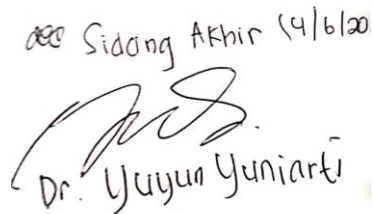 acc Sidang Akhir 14/6/20
Dr. Yuyun Yuniarti